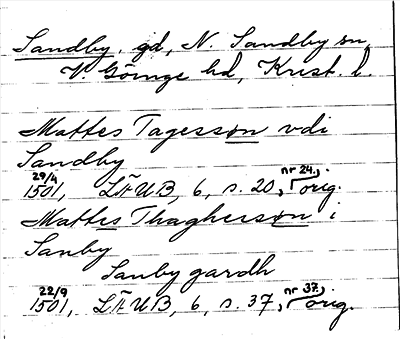 Sandby, gd, N. Sandby sn,
V Göinge hd, Krist. l.
Mattes Tagesson vdi
Sandby
29/4 nr 24,
1501, LÄUB, 6, s. 20, orig.
Mattes Thagherson i
Sanby
Sanby gardh
22/9 nr 37,
1501, LÄUB, 6, s. 37, orig.